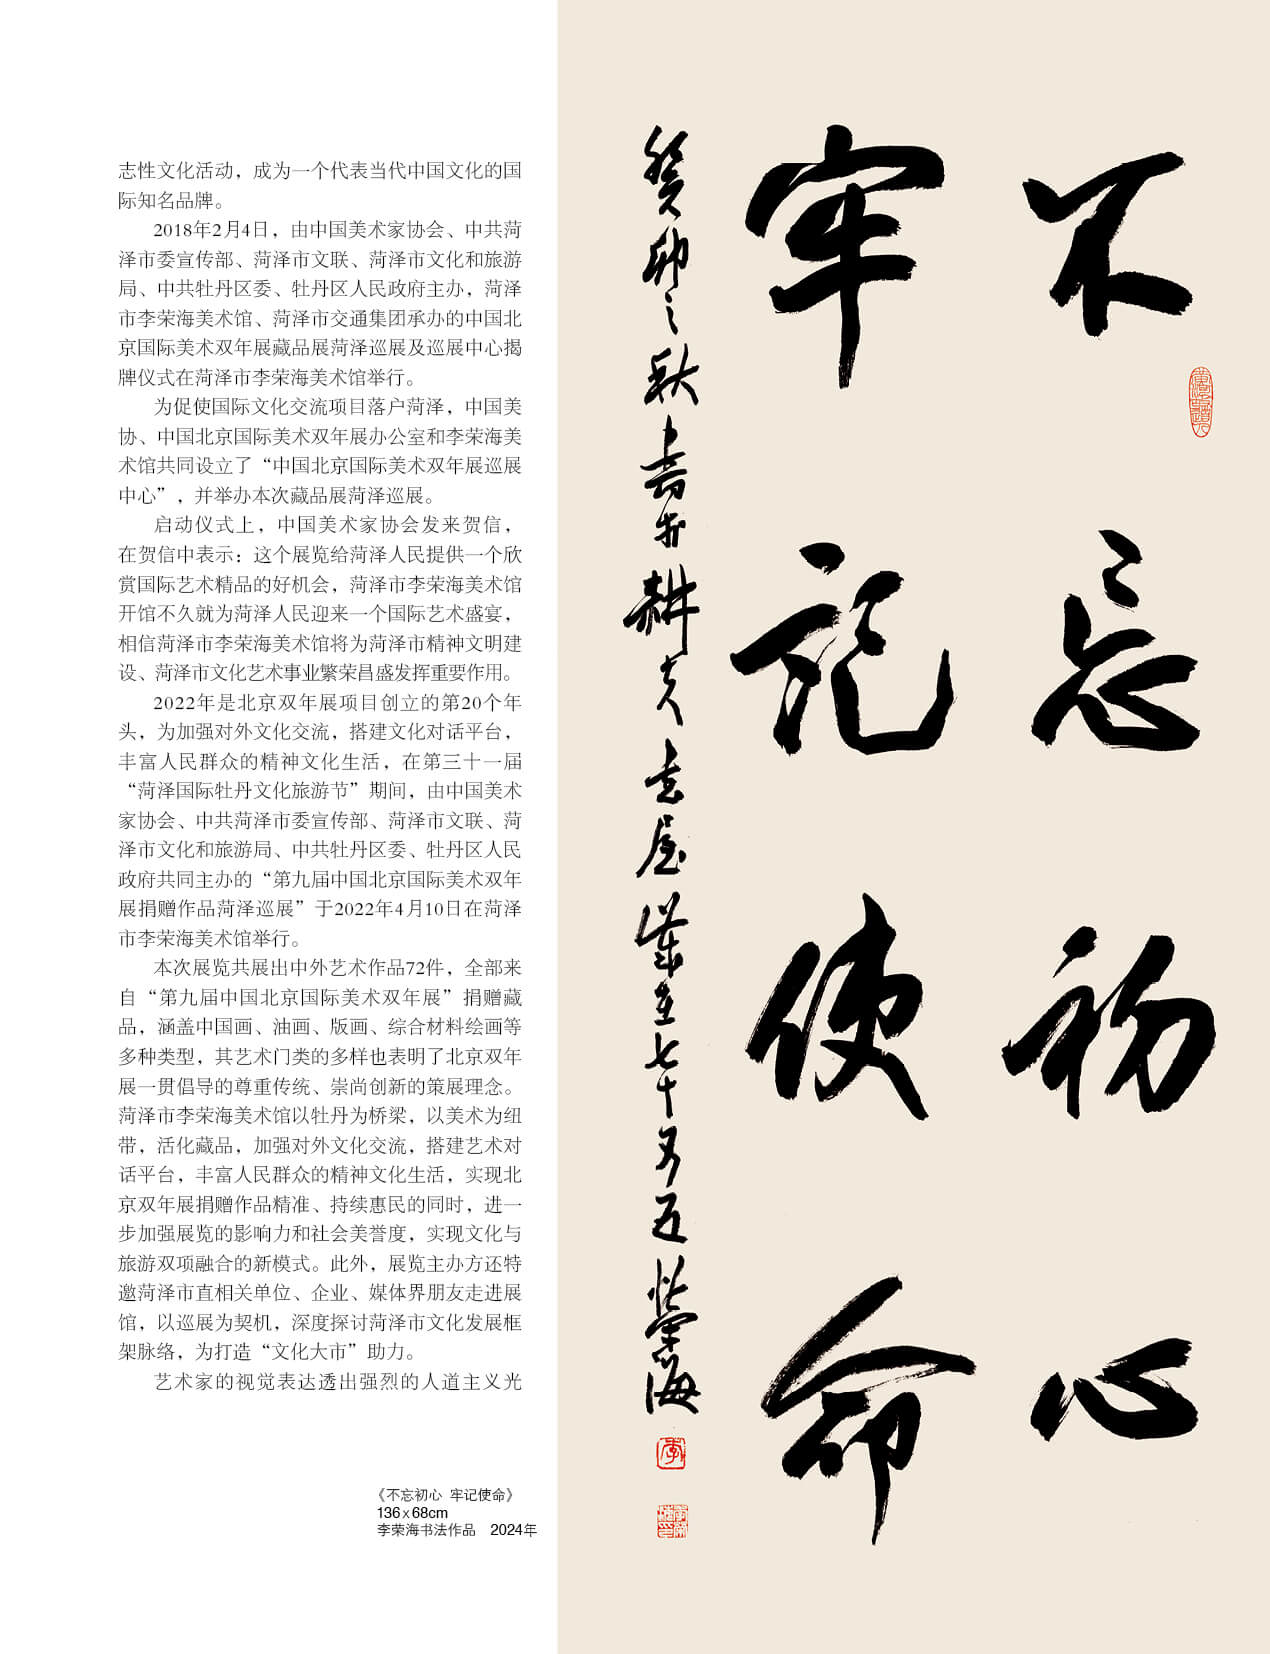 志性文化活动，成为一个代表当代中国文化的国
际知名品牌。
2018年2月4日，由中国美术家协会、中共菏
泽市委宣传部、菏泽市文联、菏泽市文化和旅游
局、中共牡丹区委、牡丹区人民政府主办，菏泽
市李荣海美术馆、菏泽市交通集团承办的中国北
京国际美术双年展藏品展菏泽巡展及巡展中心揭
牌仪式在菏泽市李荣海美术馆举行。
为促使国际文化交流项目落户菏泽，中国美
协、中国北京国际美术双年展办公室和李荣海美
术馆共同设立了“中国北京国际美术双年展巡展
中心”，并举办本次藏品展菏泽巡展。
启动仪式上，中国美术家协会发来贺信，
在贺信中表示：这个展览给菏泽人民提供一个欣
赏国际艺术精品的好机会，菏泽市李荣海美术馆
开馆不久就为菏泽人民迎来一个国际艺术盛宴，
相信菏泽市李荣海美术馆将为菏泽市精神文明建
设、菏泽市文化艺术事业繁荣昌盛发挥重要作用。
2022年是北京双年展项目创立的第20个年
头，为加强对外文化交流，搭建文化对话平台，
丰富人民群众的精神文化生活，在第三十一届
“菏泽国际牡丹文化旅游节”期间，由中国美术
家协会、中共菏泽市委宣传部、菏泽市文联、菏
泽市文化和旅游局、中共牡丹区委、牡丹区人民
政府共同主办的“第九届中国北京国际美术双年
展捐赠作品菏泽巡展”于2022年4月10日在菏泽
市李荣海美术馆举行。
本次展览共展出中外艺术作品72件，全部来
自“第九届中国北京国际美术双年展”捐赠藏
品，涵盖中国画、油画、版画、综合材料绘画等
多种类型，其艺术门类的多样也表明了北京双年
展一贯倡导的尊重传统、崇尚创新的策展理念。
菏泽市李荣海美术馆以牡丹为桥梁，以美术为纽
带，活化藏品，加强对外文化交流，搭建艺术对
话平台，丰富人民群众的精神文化生活，实现北
京双年展捐赠作品精准、持续惠民的同时，进一
步加强展览的影响力和社会美誉度，实现文化与
旅游双项融合的新模式。此外，展览主办方还特
邀菏泽市直相关单位、企业、媒体界朋友走进展
馆，以巡展为契机，深度探讨菏泽市文化发展框
架脉络，为打造“文化大市”助力。
艺术家的视觉表达透出强烈的人道主义光
《不忘初心 牢记使命》
136×68cm
李荣海书法作品 2024年
不忘初心
牢记使命
癸卯之秋书于耕夫
七十又五荣海